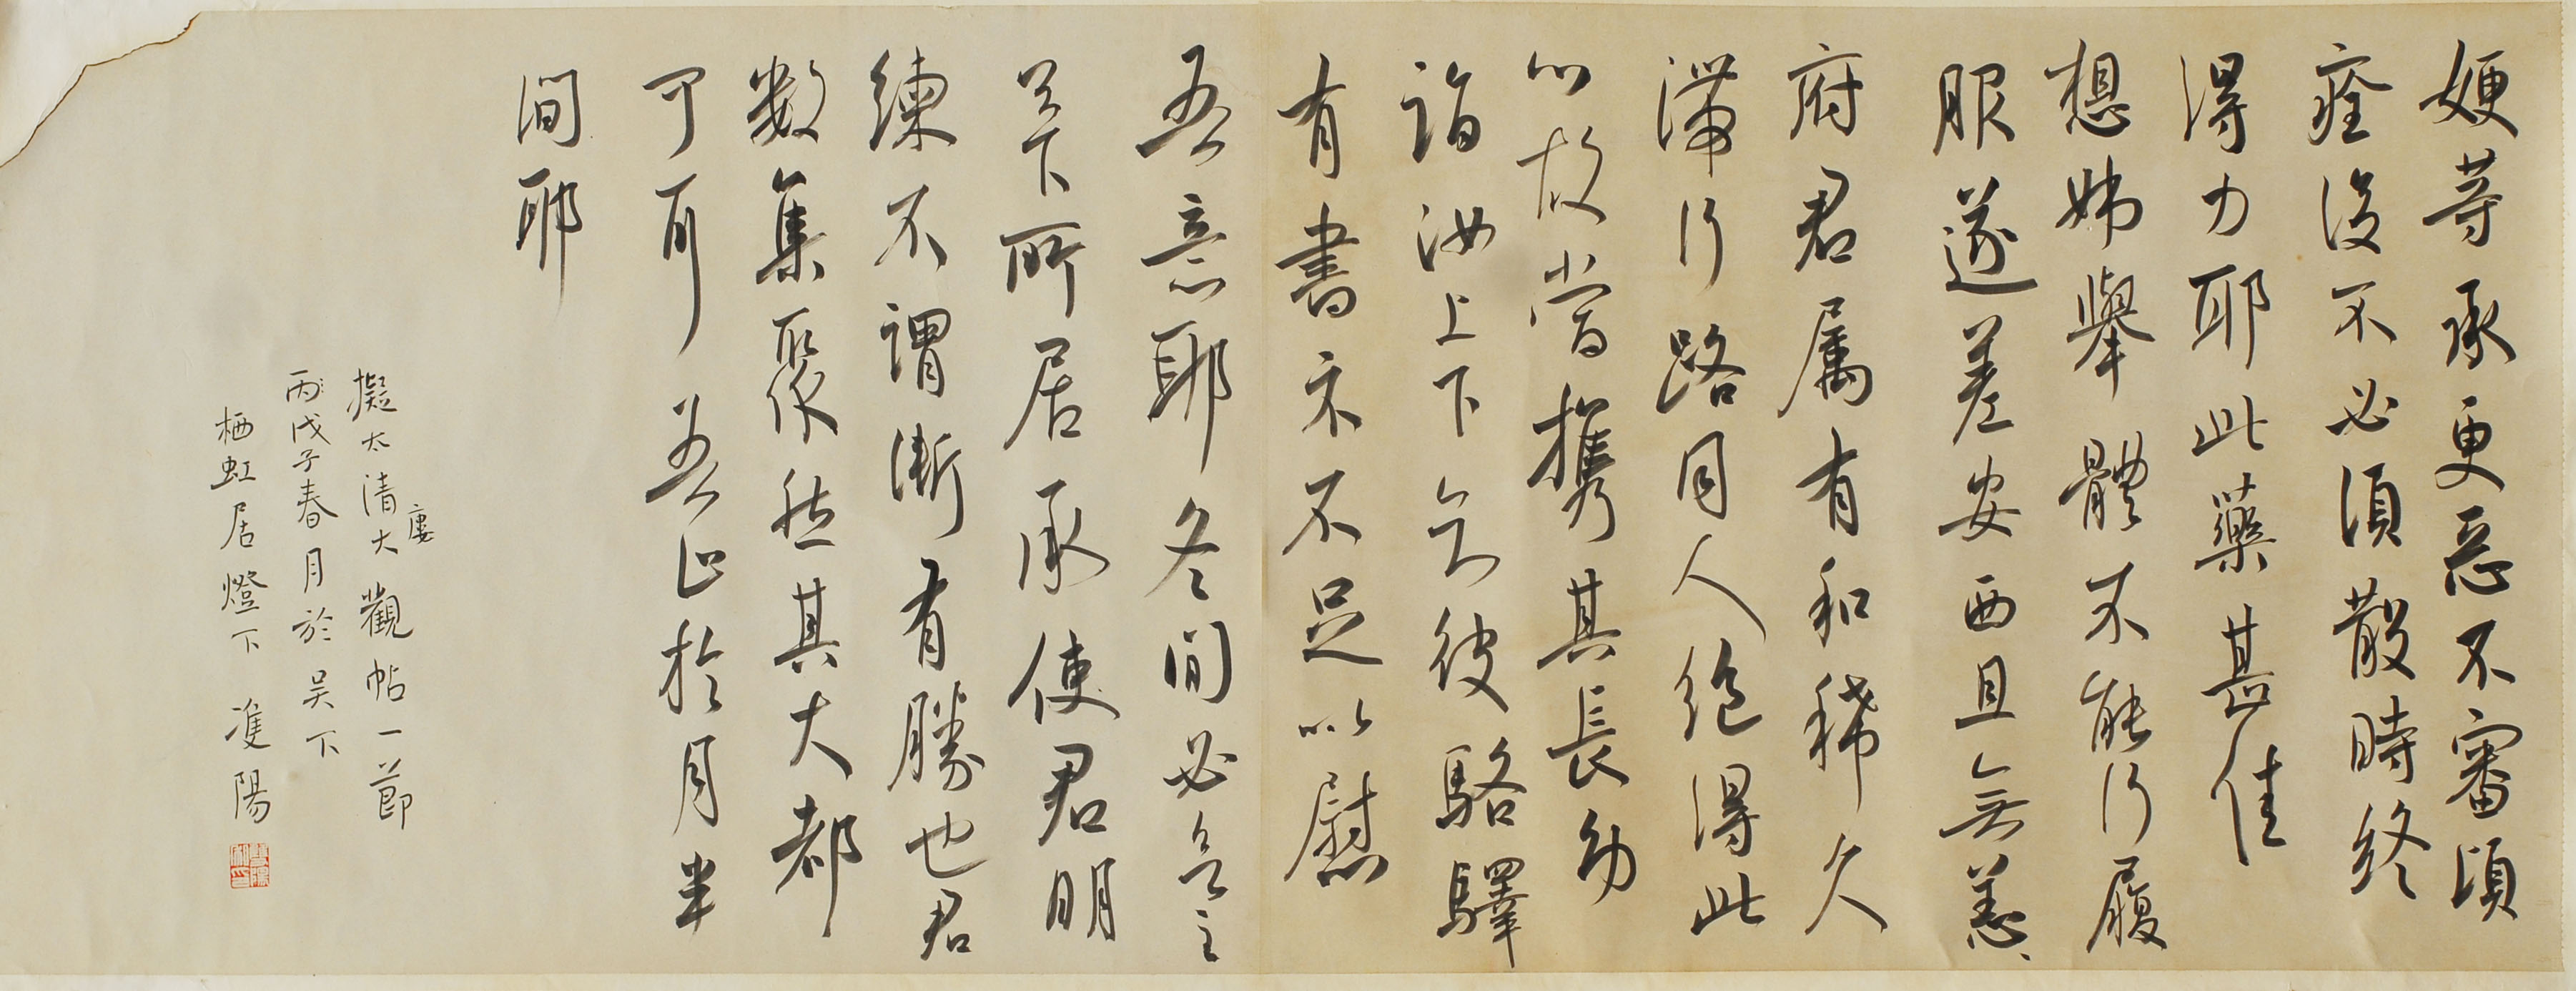 㛐等承更惡不審須
痊後不必須散時終
得力耶此藥甚佳
想姊舉體不能行履
服遂差安西且無恙
府君屬有和稀久
滯行路同人絕得此
以故當攜其長幼
詣汝上下
彼駱驛
有書示不足以慰
吾意耶冬間必
主
下所居承使君明
練不謂漸有勝也君
數集聚然其大都
可耳
止於月半
間耶
擬太清大觀帖一節
丙戌子春月於吴下
栖虹居燈下
陽